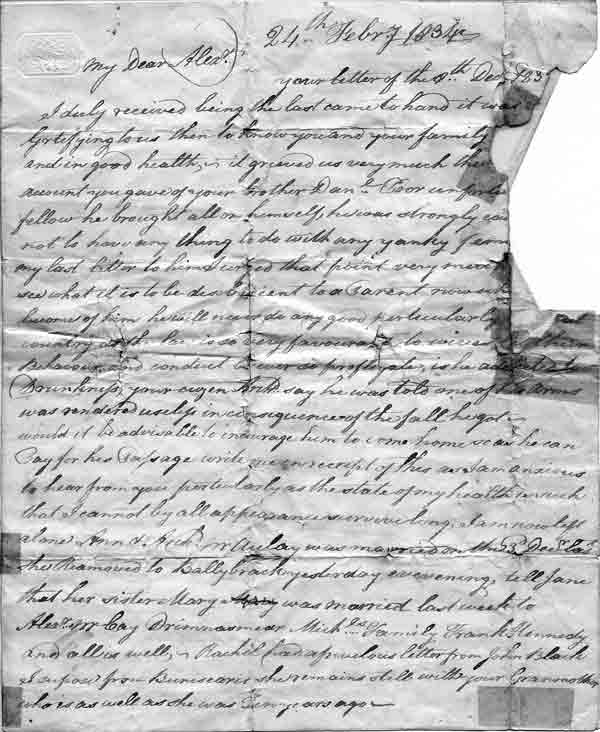 24th Febry 1834
My Dear Alexr.
your letter of the 8th Decr. 183
I duly received being the last came to hand it was
Gratifying to us then to know you and your family
and in good health, it grieved us very much the
account you gave of your brother Danl. Poor unfortu
fellow he brought all on himself he was strongly
not to have any thing to do with any yanky
my last letter to him I urged that point very much
see what it is to be disobedient to a Parent now
become of him he will never do any good particularly
country is so very favourable to vice
Behaviour and conduct ever so profligate, is he
Drunkness, your cozen Archd. say he was told one of his arms
was rendered useless in consequence of the fall he got
would it be advisable to incourage him to come home so as he can
Pay for his Passage write me on receipt of this as I am anxious
to hear from you particularly as the state of my health is such
that I cannot by all appearance survive long, I am now left
alone Ann & Archd. McAulay was married on the 3d. Decr. last
she Removed to Ballybrack yesterday evening, tell Jane
that her sister Mary was married last week to
Alexr. McCay Drimnasmear Michls. Family Frank Kennedy
and all is well, Rachel had a letter from John Black
from she remains still with your Grandmother
who is as well as she was Ten years ago